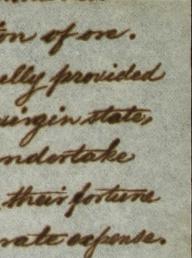 on of ore.
elly provided
virgin state,
ndertake
their fortune
rate expense.